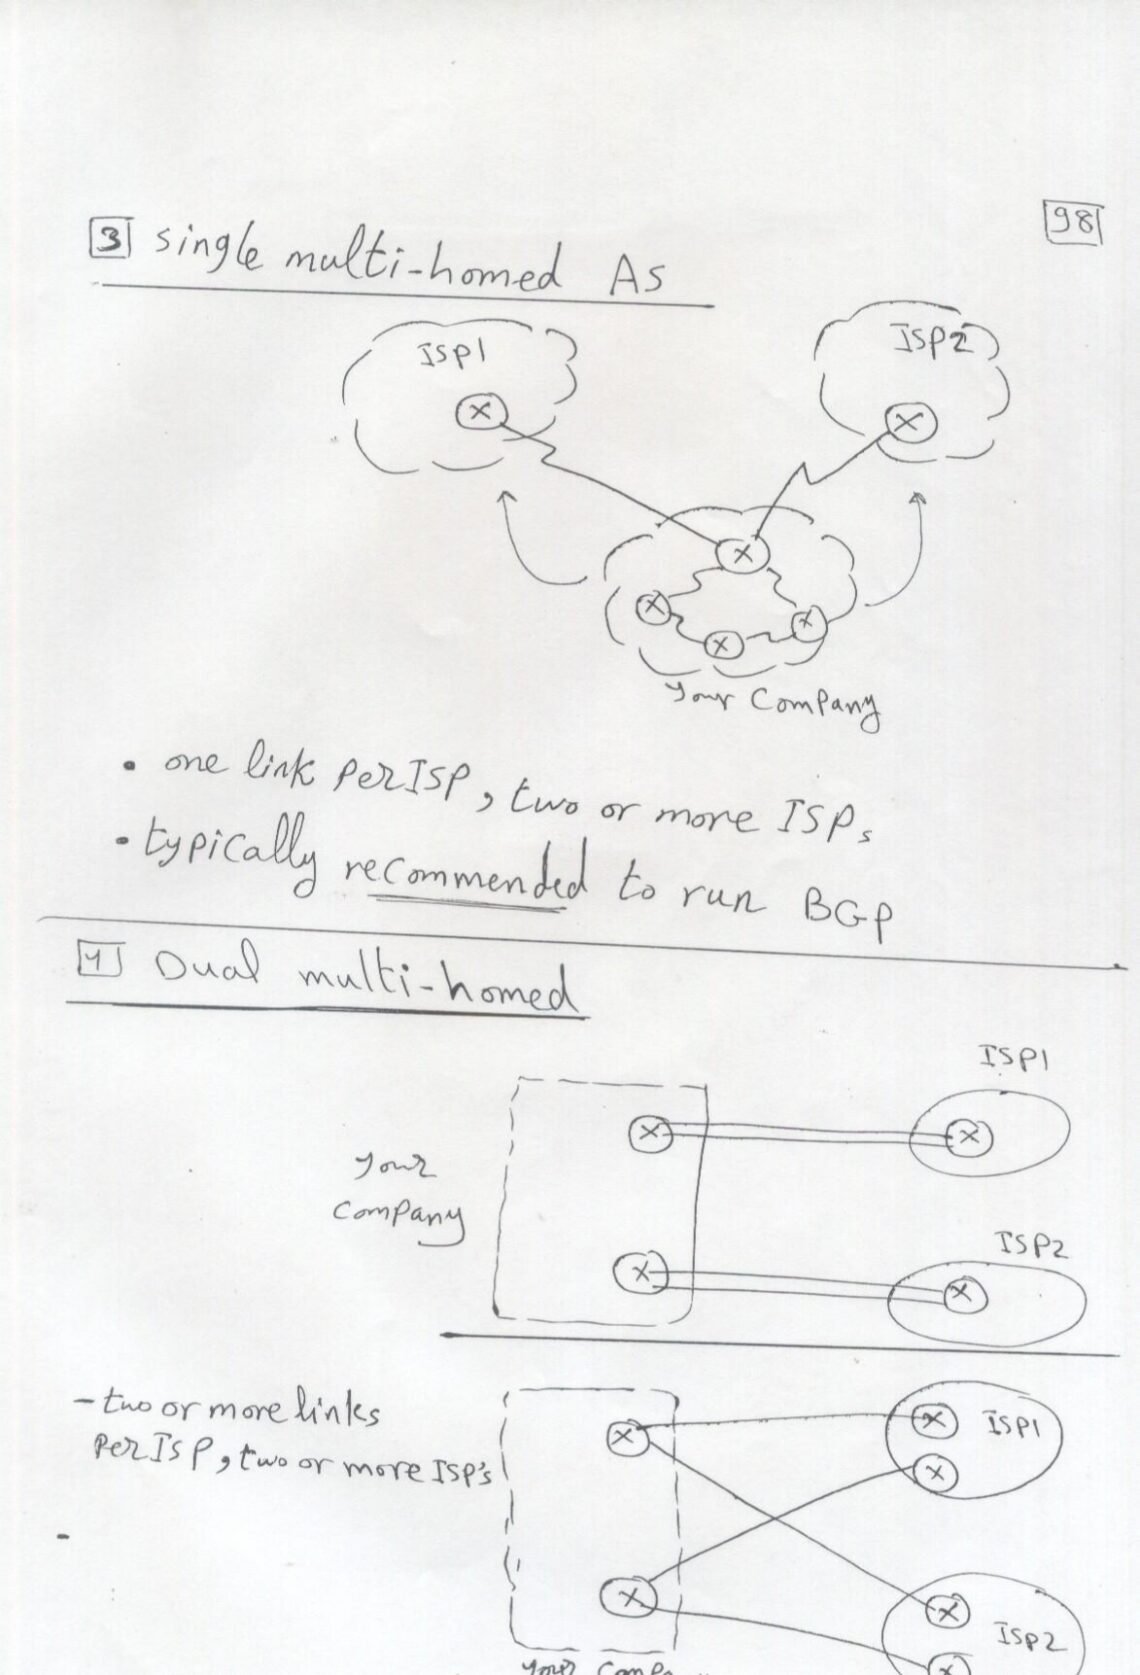 98
3 single multi-homed AS
ISP1
ISP2
Your Company
• one link per ISP, two or more ISPs
• typically recommended to run BGP
4 Dual multi-homed
ISP1
Your
Company
ISP2
- two or more links
per ISP, two or more ISP's
ISP1
-
ISP2
Your